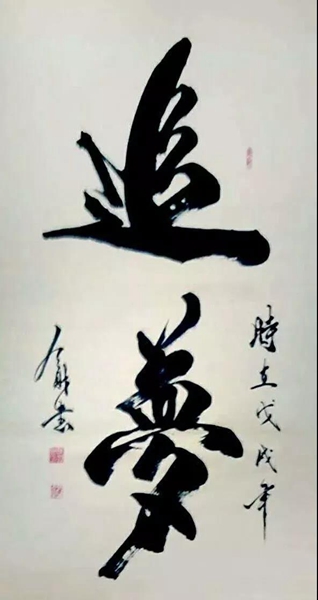 追夢
時在戊戌年